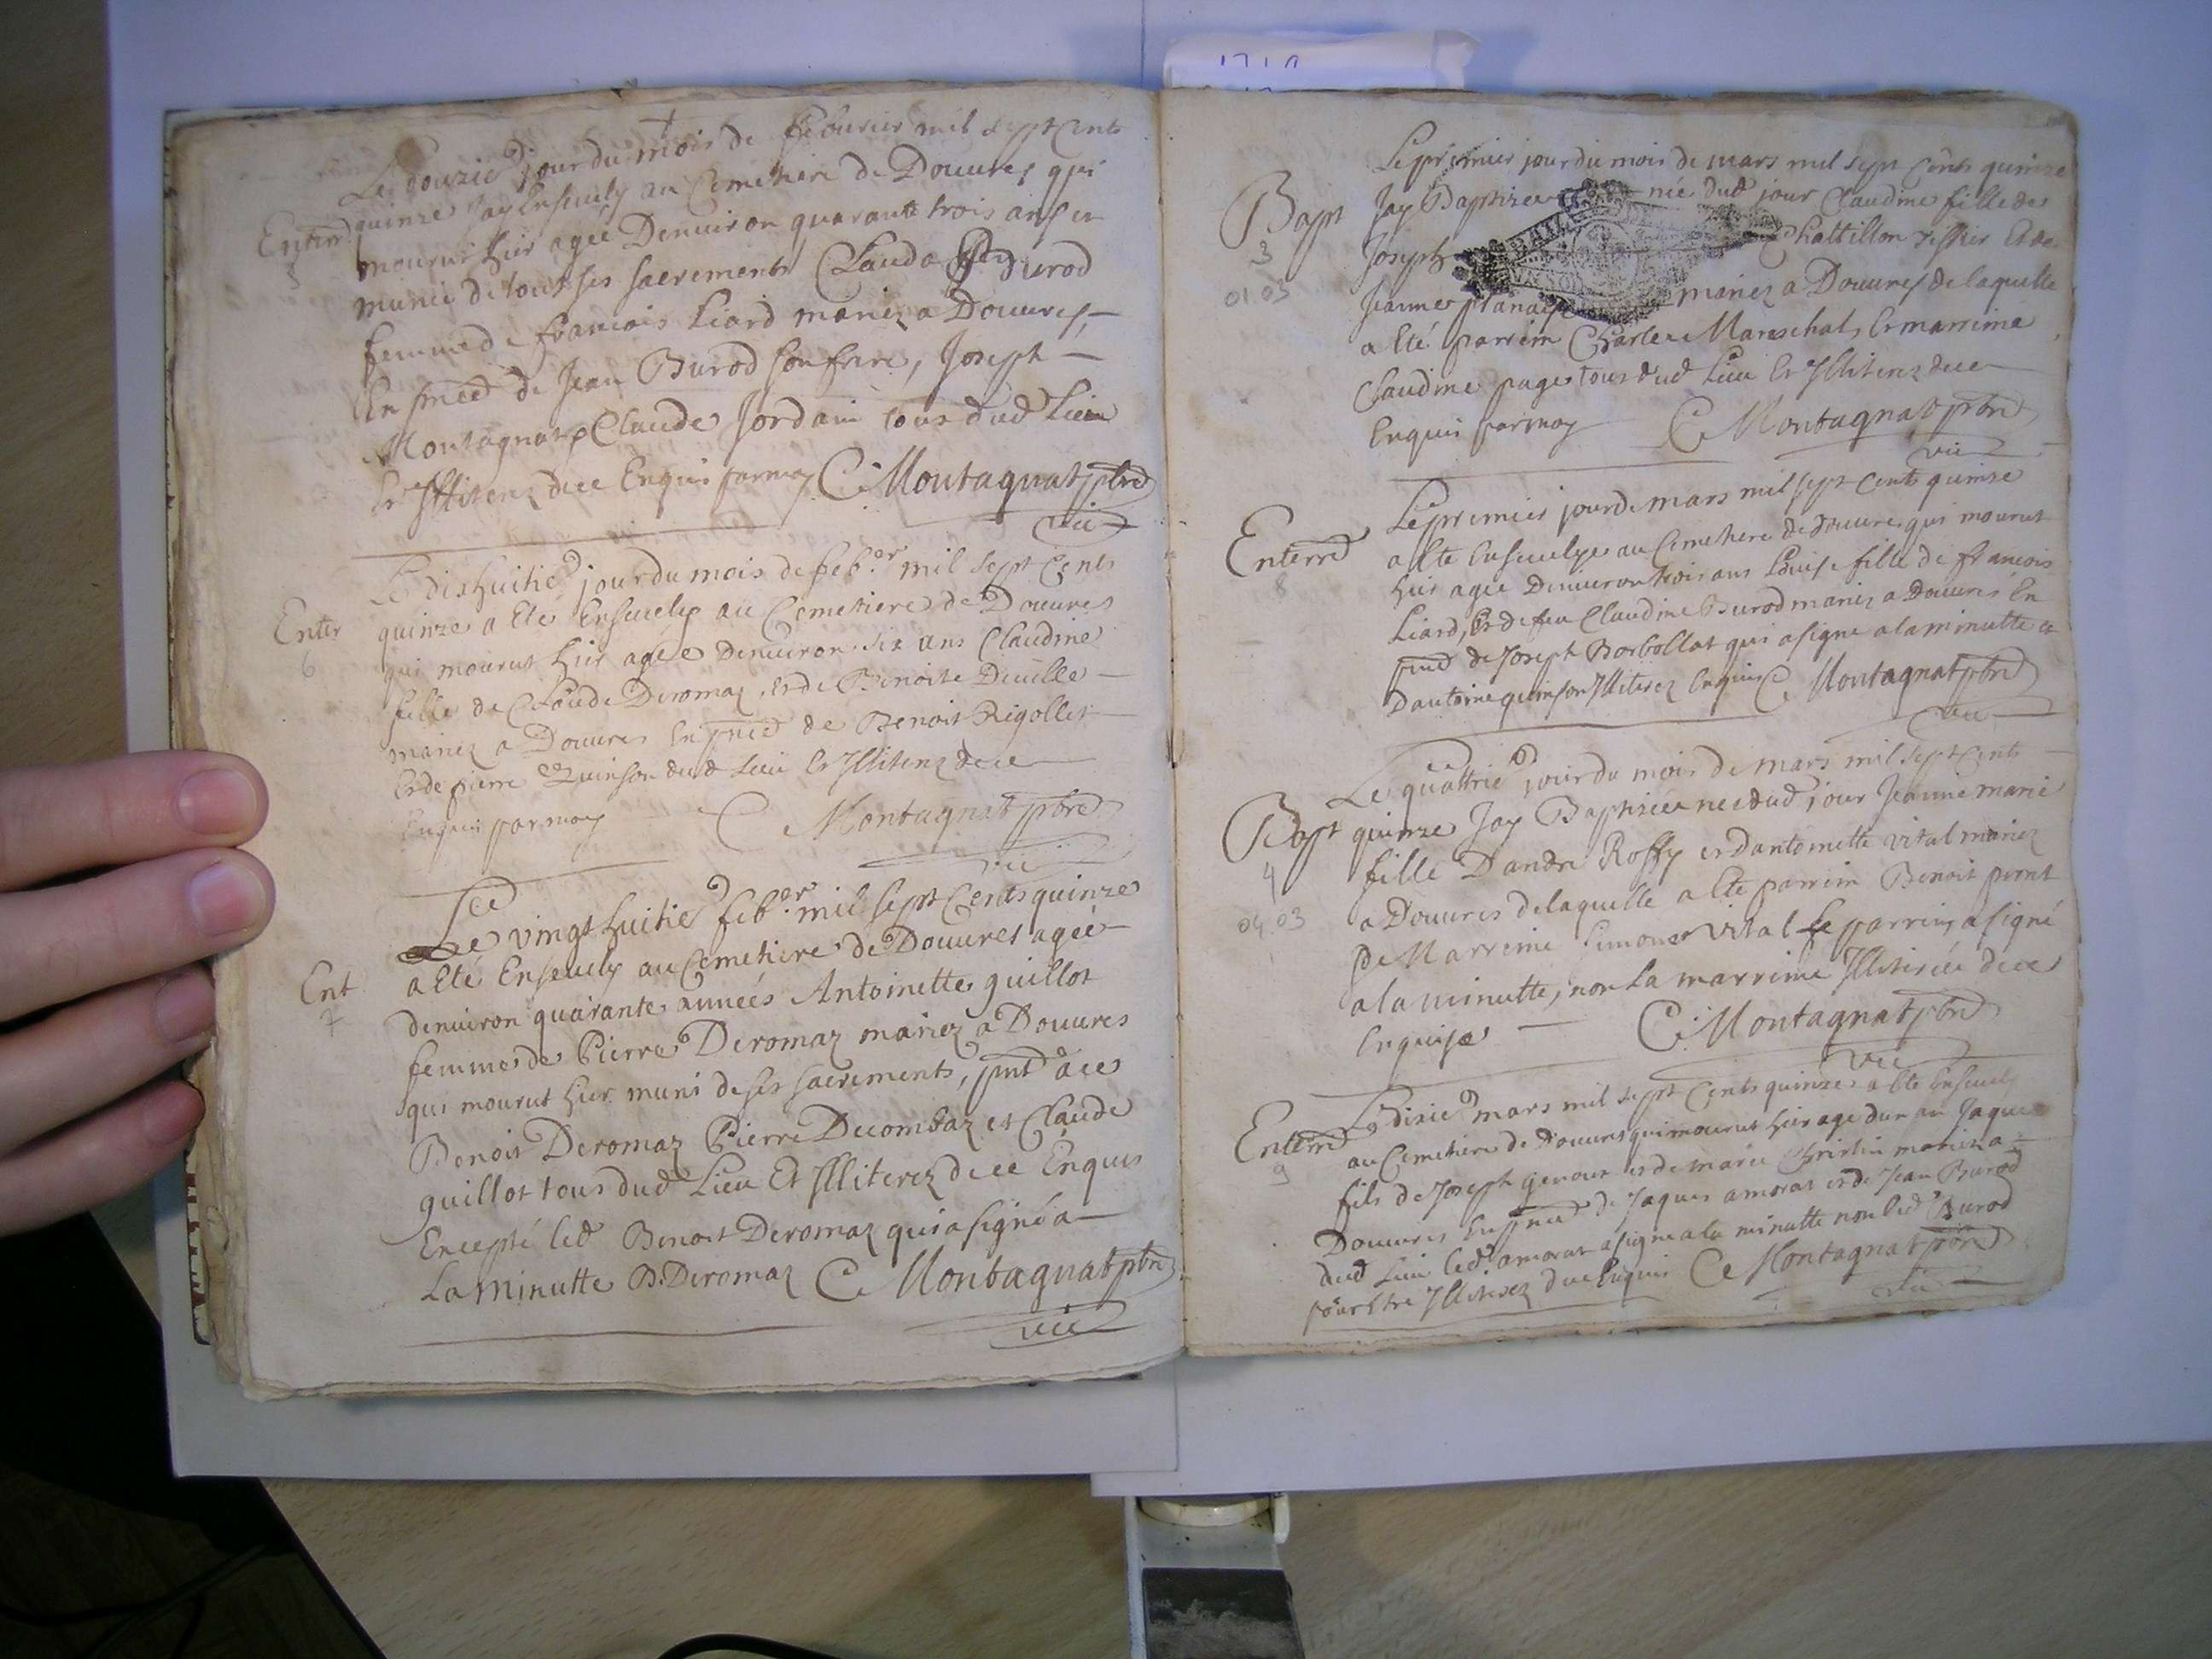 Le douzie jour du mois de feburier mil sept Cents
Enterr quinze Jay Ensevely au Cemetiere de Douures qui
5
mourut hier agée Denuiron quarante trois ans et
munie de tous ses sacrements Clauda Burod
femme de francois Liard mariez a Douures,
En pnced de Jean Burod son frere, Joseph
Montagnat Claude Jordain tous dud Lieu
Et Illiterez de ce Enquis par moy C Montagnat pbre
vic
Le dishuitie jour du mois de feb.er mil sept Cents
Enter quinze a Eté Ensevely au Cemetiere de Douures
6
qui mourut hier agée Denuiron six ans Claudine
fille de Claude Deromaz et de Benoite Deuille
mariez a Douures En pnced de Benoit Rigollet
Et de pierre Quinson dud Lieu Et Illiterez de ce
Enquis par moy C Montagnat pbre
vic
Le vingt huitie feb.er mil sept Cents quinze
Ent a Eté Ensevely au Cemetiere de Douures agée
7
denuiron quarante années Antoinette guillot
femme de Pierre Deromaz mariez a Douures
qui mourut hier muni de ses sacrements, pnt a ce
Benoit Deromaz Pierre Decombaz et Claude
guillot tous dud Lieu Et Illiterez de ce Enquis
Excepté led Benoit Deromaz qui a signé a
La minutte B. Deromaz C Montagnat pbre
vic
Le premier jour du mois de mars mil sept Cents quinze
Bapt Jay Baptizee née dud jour Claudine fille de
3
Joseph Chattillon tessier Et de
01.03
Jeanne mariez a Douures de laquelle
a Eté parrein Charle Mareschal, Et marreine
Claudine page tous dud Lieu Et Illiterez de ce
Enquis par moy C Montagnat pbre
vic
Le premier jour de mars mil sept Cents quinze
Enterré a Ete Ensevelye au Cemetiere de Douures qui mourut
8
hier agee Denuiron trois ans Louise fille de francois
Liard, Et de feu Claudine Burod mariez a Douures En
pnced de Joseph Borbollat qui a signe a la minutte et
Dantoine quinson Illiterez Enquis C Montagnat pbre
vic
Le quattrie jour du mois de mars mil sept Cents
Bapt quinze Jay Baptizée née dud jour Jeanne marie
4
fille Dandré Roffy et dantoinette vital mariez
04.03
a Douures de laquelle a Ete parrein Benoit
Marreine Simone vital Le parrein a signé
a la minutte, non La marreine Illiterée de ce
Enquise C Montagnat pbre
vic
Le dixie mars mil sept Cents quinze a Ete Ensevely
Enterré au Cemetiere de Douures qui mourut hier age dun an Jaque
9
fils de Joseph genoux et de marie mariez a
Douures En pnced de Jaques amorat et de Jean Burod
dud Lieu led amorat a signe a la minutte non led Burod
pour Etre Illiterez de ce Enquis C Montagnat pbre
vic